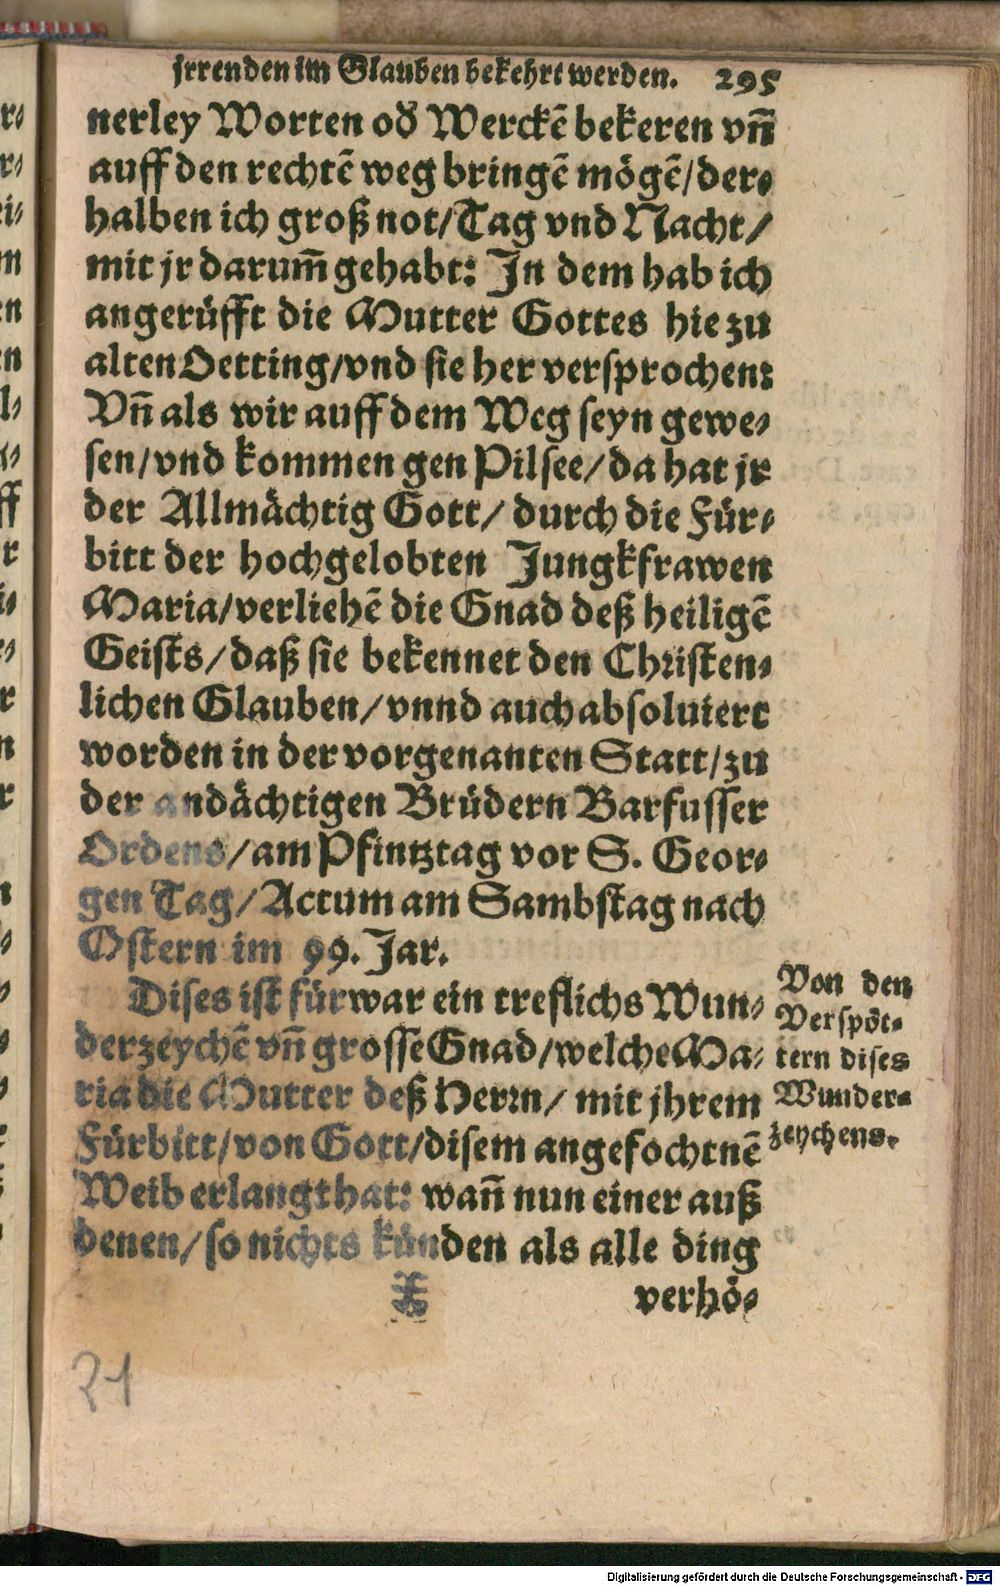 jrrenden im Glauben bekehrt werden. 295
nerley Worten od̕ Werckē bekeren vñ
auff den rechtē weg bringē mögē/der⸗
halben ich groß not/Tag vnd Nacht/
mit jr darum̄ gehabt: In dem hab ich
angerüfft die Mutter Gottes hie zu
alten Oetting/vnd sie her versprochen:
Vñ als wir auff dem Weg seyn gewe⸗
sen/vnd kommen gen Pilsee/da hat jr
der Allmächtig Gott/durch die Für⸗
bitt der hochgelobten Jungkfrawen
Maria/verliehē die Gnad deß heiligē
Geists/daß sie bekennet den Christen⸗
lichen Glauben/vnnd auch absoluiert
worden in der vorgenanten Statt/zu
der andächtigen Brüdern Barfusser
Ordens/am Pfintztag vor S. Geor⸗
gen Tag/Actum am Sambstag nach
Ostern im 99. Jar.
Dises ist fürwar ein treflichs Wun⸗
derzeychē vñ grosse Gnad/welche Ma⸗
ria die Mutter deß Herrn/mit jhrem
Fürbitt/von Gott/disem angefochtnē
Weib erlangt hat: wañ nun einer auß
denen/so nichts künden als alle ding
verhö⸗
Von den
Verspöt⸗
tern dises
Wunder⸗
zeychens.
21
Digitalisierung gefördert durch die Deutsche Forschungsgemeinschaft - DFG